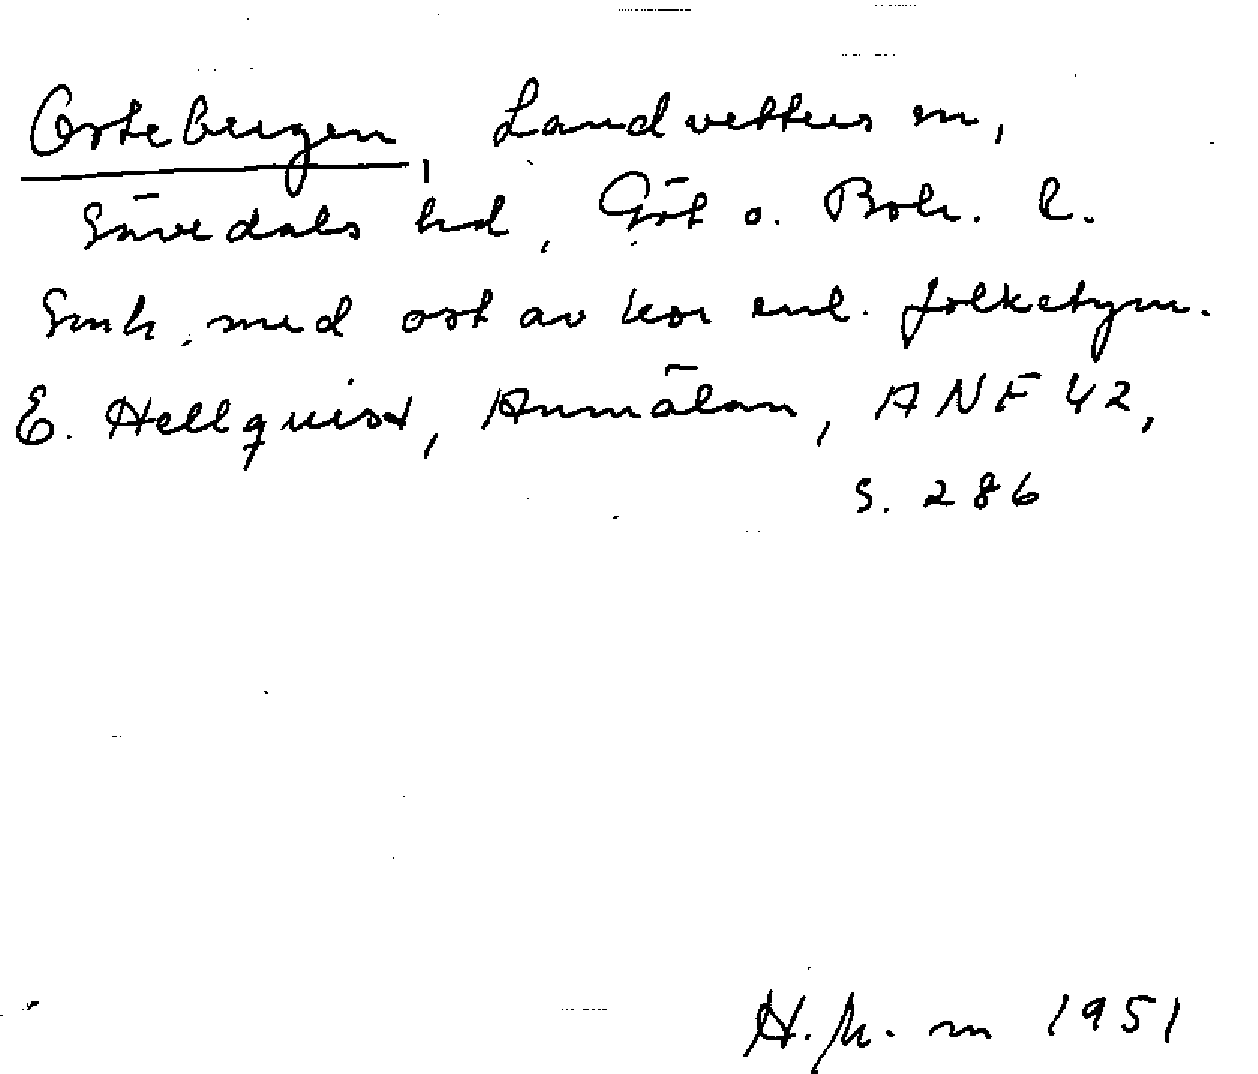 Ostebergen, Landvetters sn,
Sävedals hd, Göt o. Boh. l.
Smh. med ost av kor enl. folketym.
E. Hellquist, Anmälan, ANF 42,
s. 286
1951